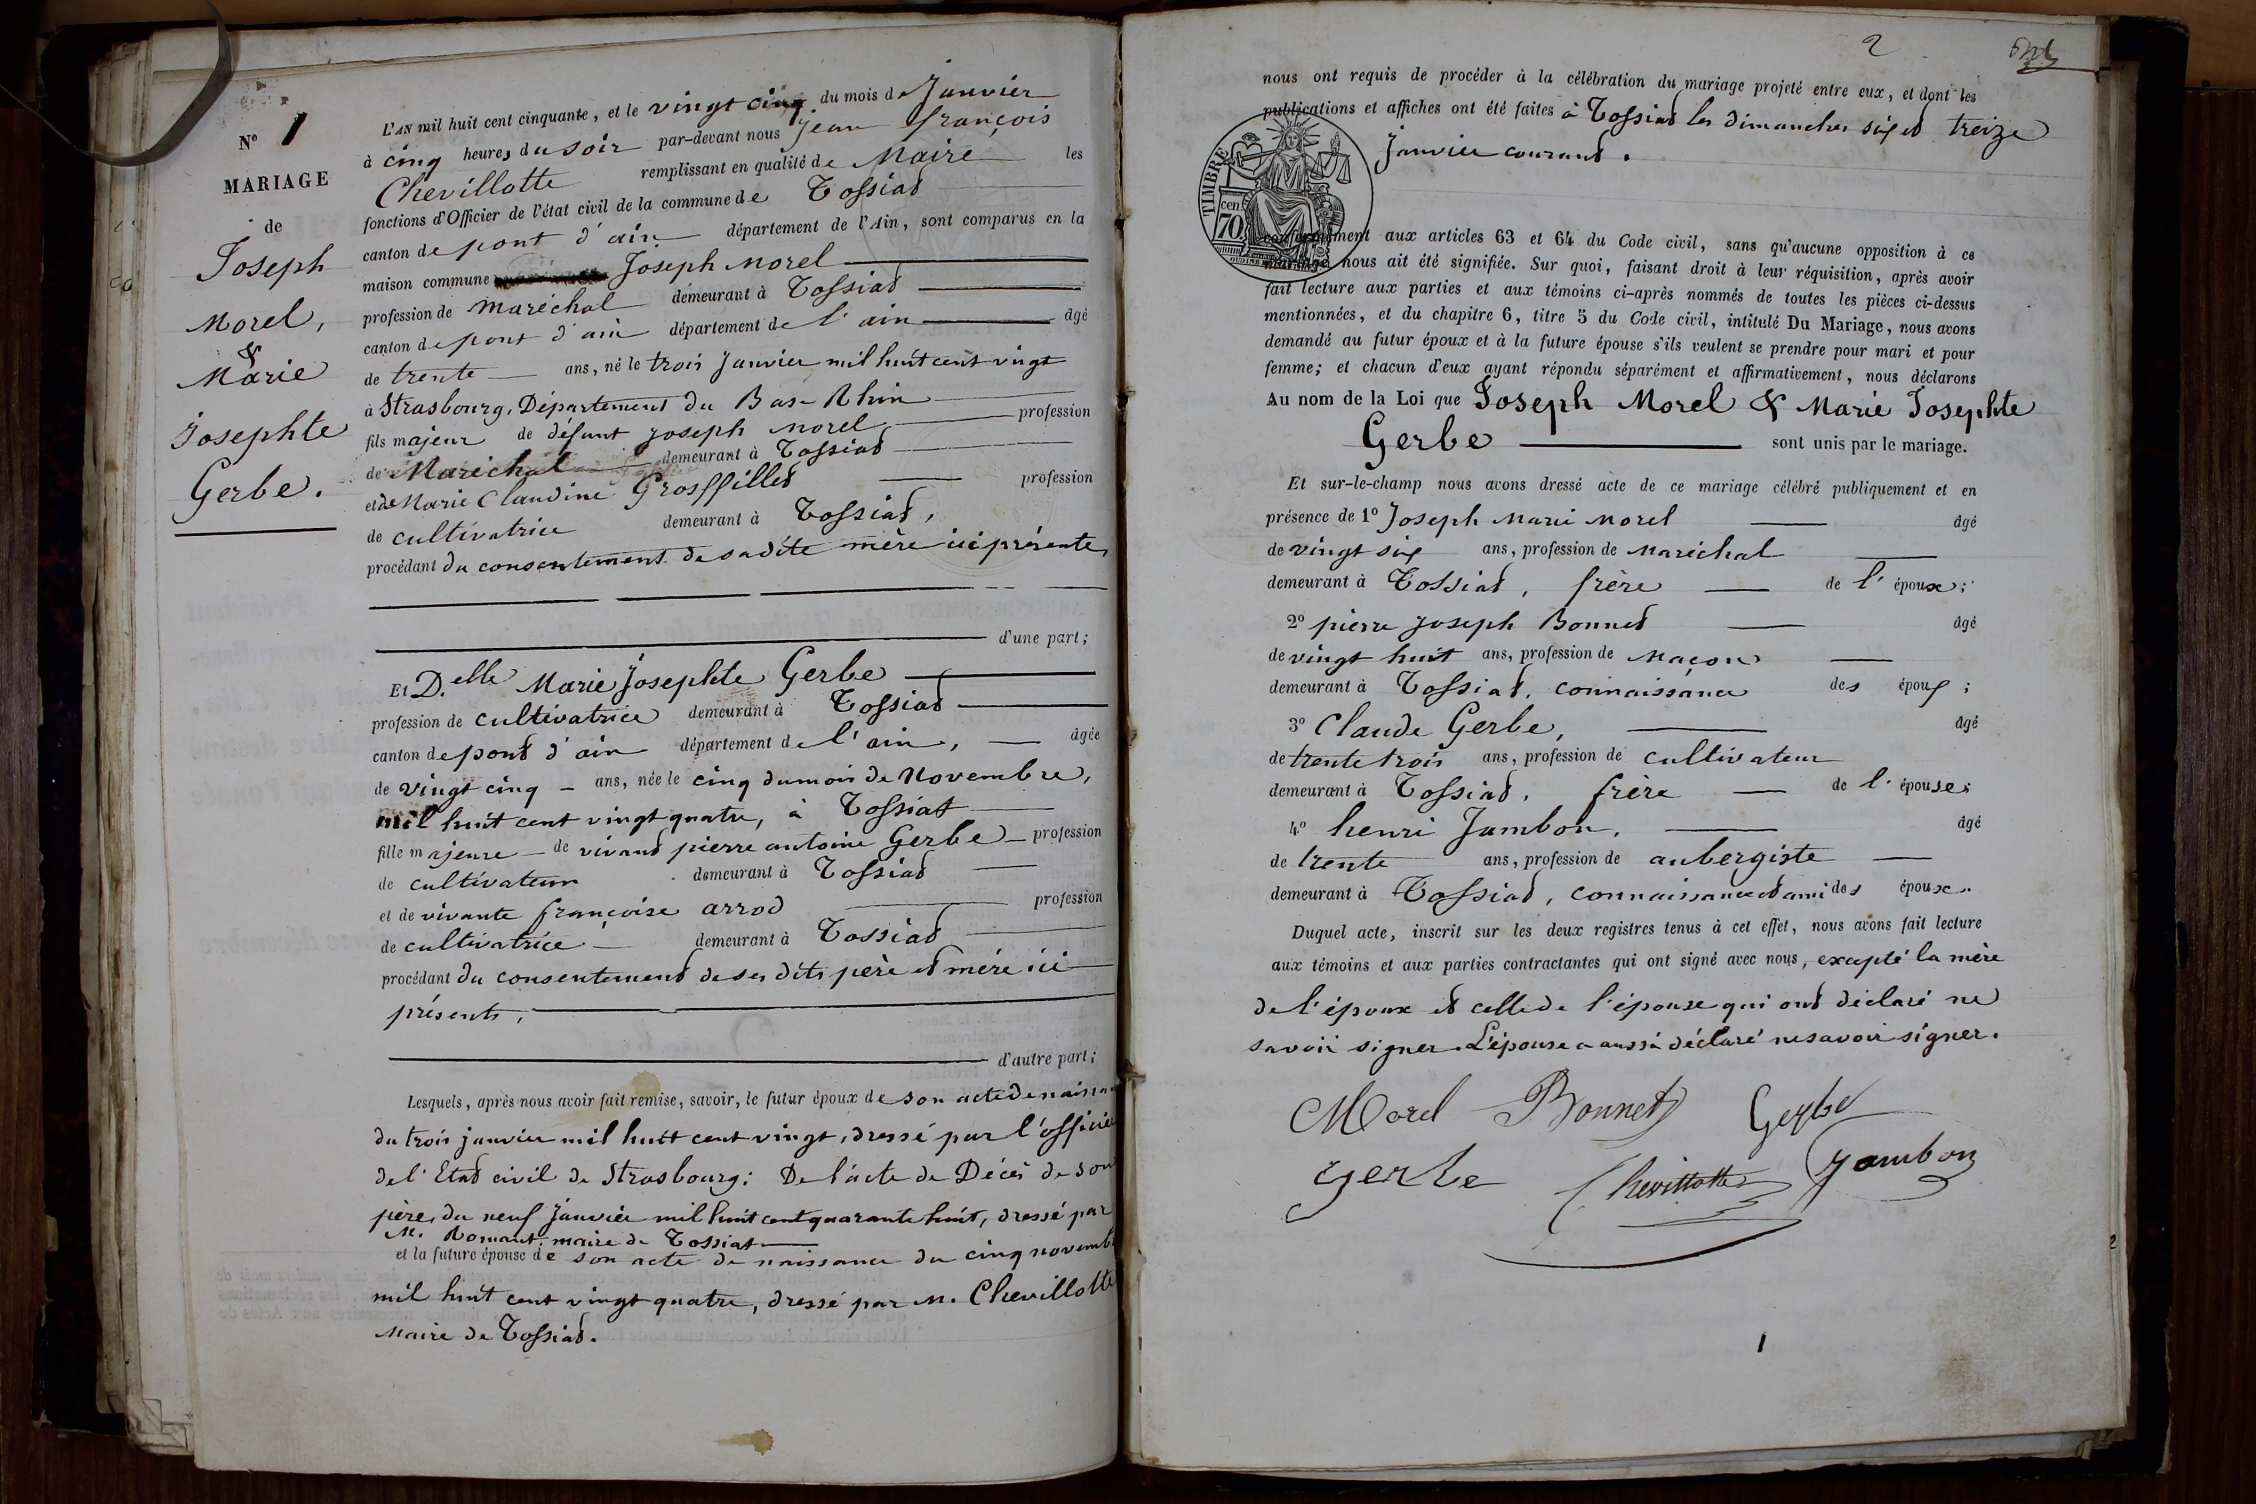 N° 1
MARIAGE
de
Joseph
Morel,
&
Marie
Josephte
Gerbe.
L'AN mil huit cent cinquante, et le vingt cinq du mois de Janvier
à cinq heures du soir par-devant nous Jean françois
Chevillotte remplissant en qualité de Maire les
fonctions d'Officier de l'état civil de la commune de Tossiat
canton de pont d'ain département de l'Ain, sont comparus en la
maison commune Joseph Morel
profession de Maréchal demeurant à Tossiat
canton de pont d'ain département de l'ain âgé
de trente ans, né le trois Janvier mil huit cent vingt
à Strasbourg, Département du Bas-Rhin
fils majeur de défunt Joseph Morel profession
de Maréchal demeurant à Tossiat
et de Marie Claudine Grosffillet profession
de cultivatrice demeurant à Tossiat,
procédant du consentement de sadite mère ici présente,
d'une part;
Et D.elle Marie Josephte Gerbe
profession de cultivatrice demeurant à Tossiat
canton de pont d'ain département de l'ain, âgée
de vingt cinq ans, née le cinq du mois de Novembre,
mil huit cent vingt quatre, à Tossiat
fille majeure de vivant pierre antoine Gerbe profession
de cultivateur demeurant à Tossiat
et de vivante françoise arrod profession
de cultivatrice demeurant à Tossiat
procédant du consentement de ses dits père et mère ici
présents,
d'autre part;
Lesquels, après nous avoir fait remise, savoir, le futur époux de son acte de naissan
du trois janvier mil huit cent vingt, dressé par l'officier
de l'Etat civil de Strasbourg: De l'acte de Décès de son
père, du neuf Janvier mil huit cent quarante huit, dressé par
M. Romant, maire de Tossiat
et la future épouse de son acte de naissance du cinq novemb
mil huit cent vingt quatre, dressé par M. Chevillotte
Maire de Tossiat.
2
nous ont requis de procéder à la célébration du mariage projeté entre eux, et dont les
publications et affiches ont été faites à Tossiat les dimanches six et treize
Janvier courant.
TIMBRE
70 cen
conformément aux articles 63 et 64 du Code civil, sans qu'aucune opposition à ce
mariage nous ait été signifiée. Sur quoi, faisant droit à leur réquisition, après avoir
fait lecture aux parties et aux témoins ci-après nommés de toutes les pièces ci-dessus
mentionnées, et du chapitre 6, titre 5 du Code civil, intitulé Du Mariage, nous avons
demandé au futur époux et à la future épouse s'ils veulent se prendre pour mari et pour
femme; et chacun d'eux ayant répondu séparément et affirmativement, nous déclarons
Au nom de la Loi que Joseph Morel & Marie Josephte
Gerbe sont unis par le mariage.
Et sur-le-champ nous avons dressé acte de ce mariage célébré publiquement et en
présence de 1° Joseph Marie Morel âgé
de vingt six ans, profession de Maréchal
demeurant à Tossiat, frère de l'époux;
2° pierre Joseph Bonnet âgé
de vingt huit ans, profession de Maçon
demeurant à Tossiat, connaissance des époux;
3° Claude Gerbe, âgé
de trente trois ans, profession de cultivateur
demeurant à Tossiat, frère de l'épouse;
4° henri Jambon, âgé
de trente ans, profession de aubergiste
demeurant à Tossiat, connaissance et ami des époux.
Duquel acte, inscrit sur les deux registres tenus à cet effet, nous avons fait lecture
aux témoins et aux parties contractantes qui ont signé avec nous, excepté la mère
de l'époux et celle de l'épouse qui ont déclaré ne
savoir signer. L'épouse a aussi déclaré ne savoir signer.
Morel Bonnet Gerbe
Gerbe Chevillotte Jambon
1